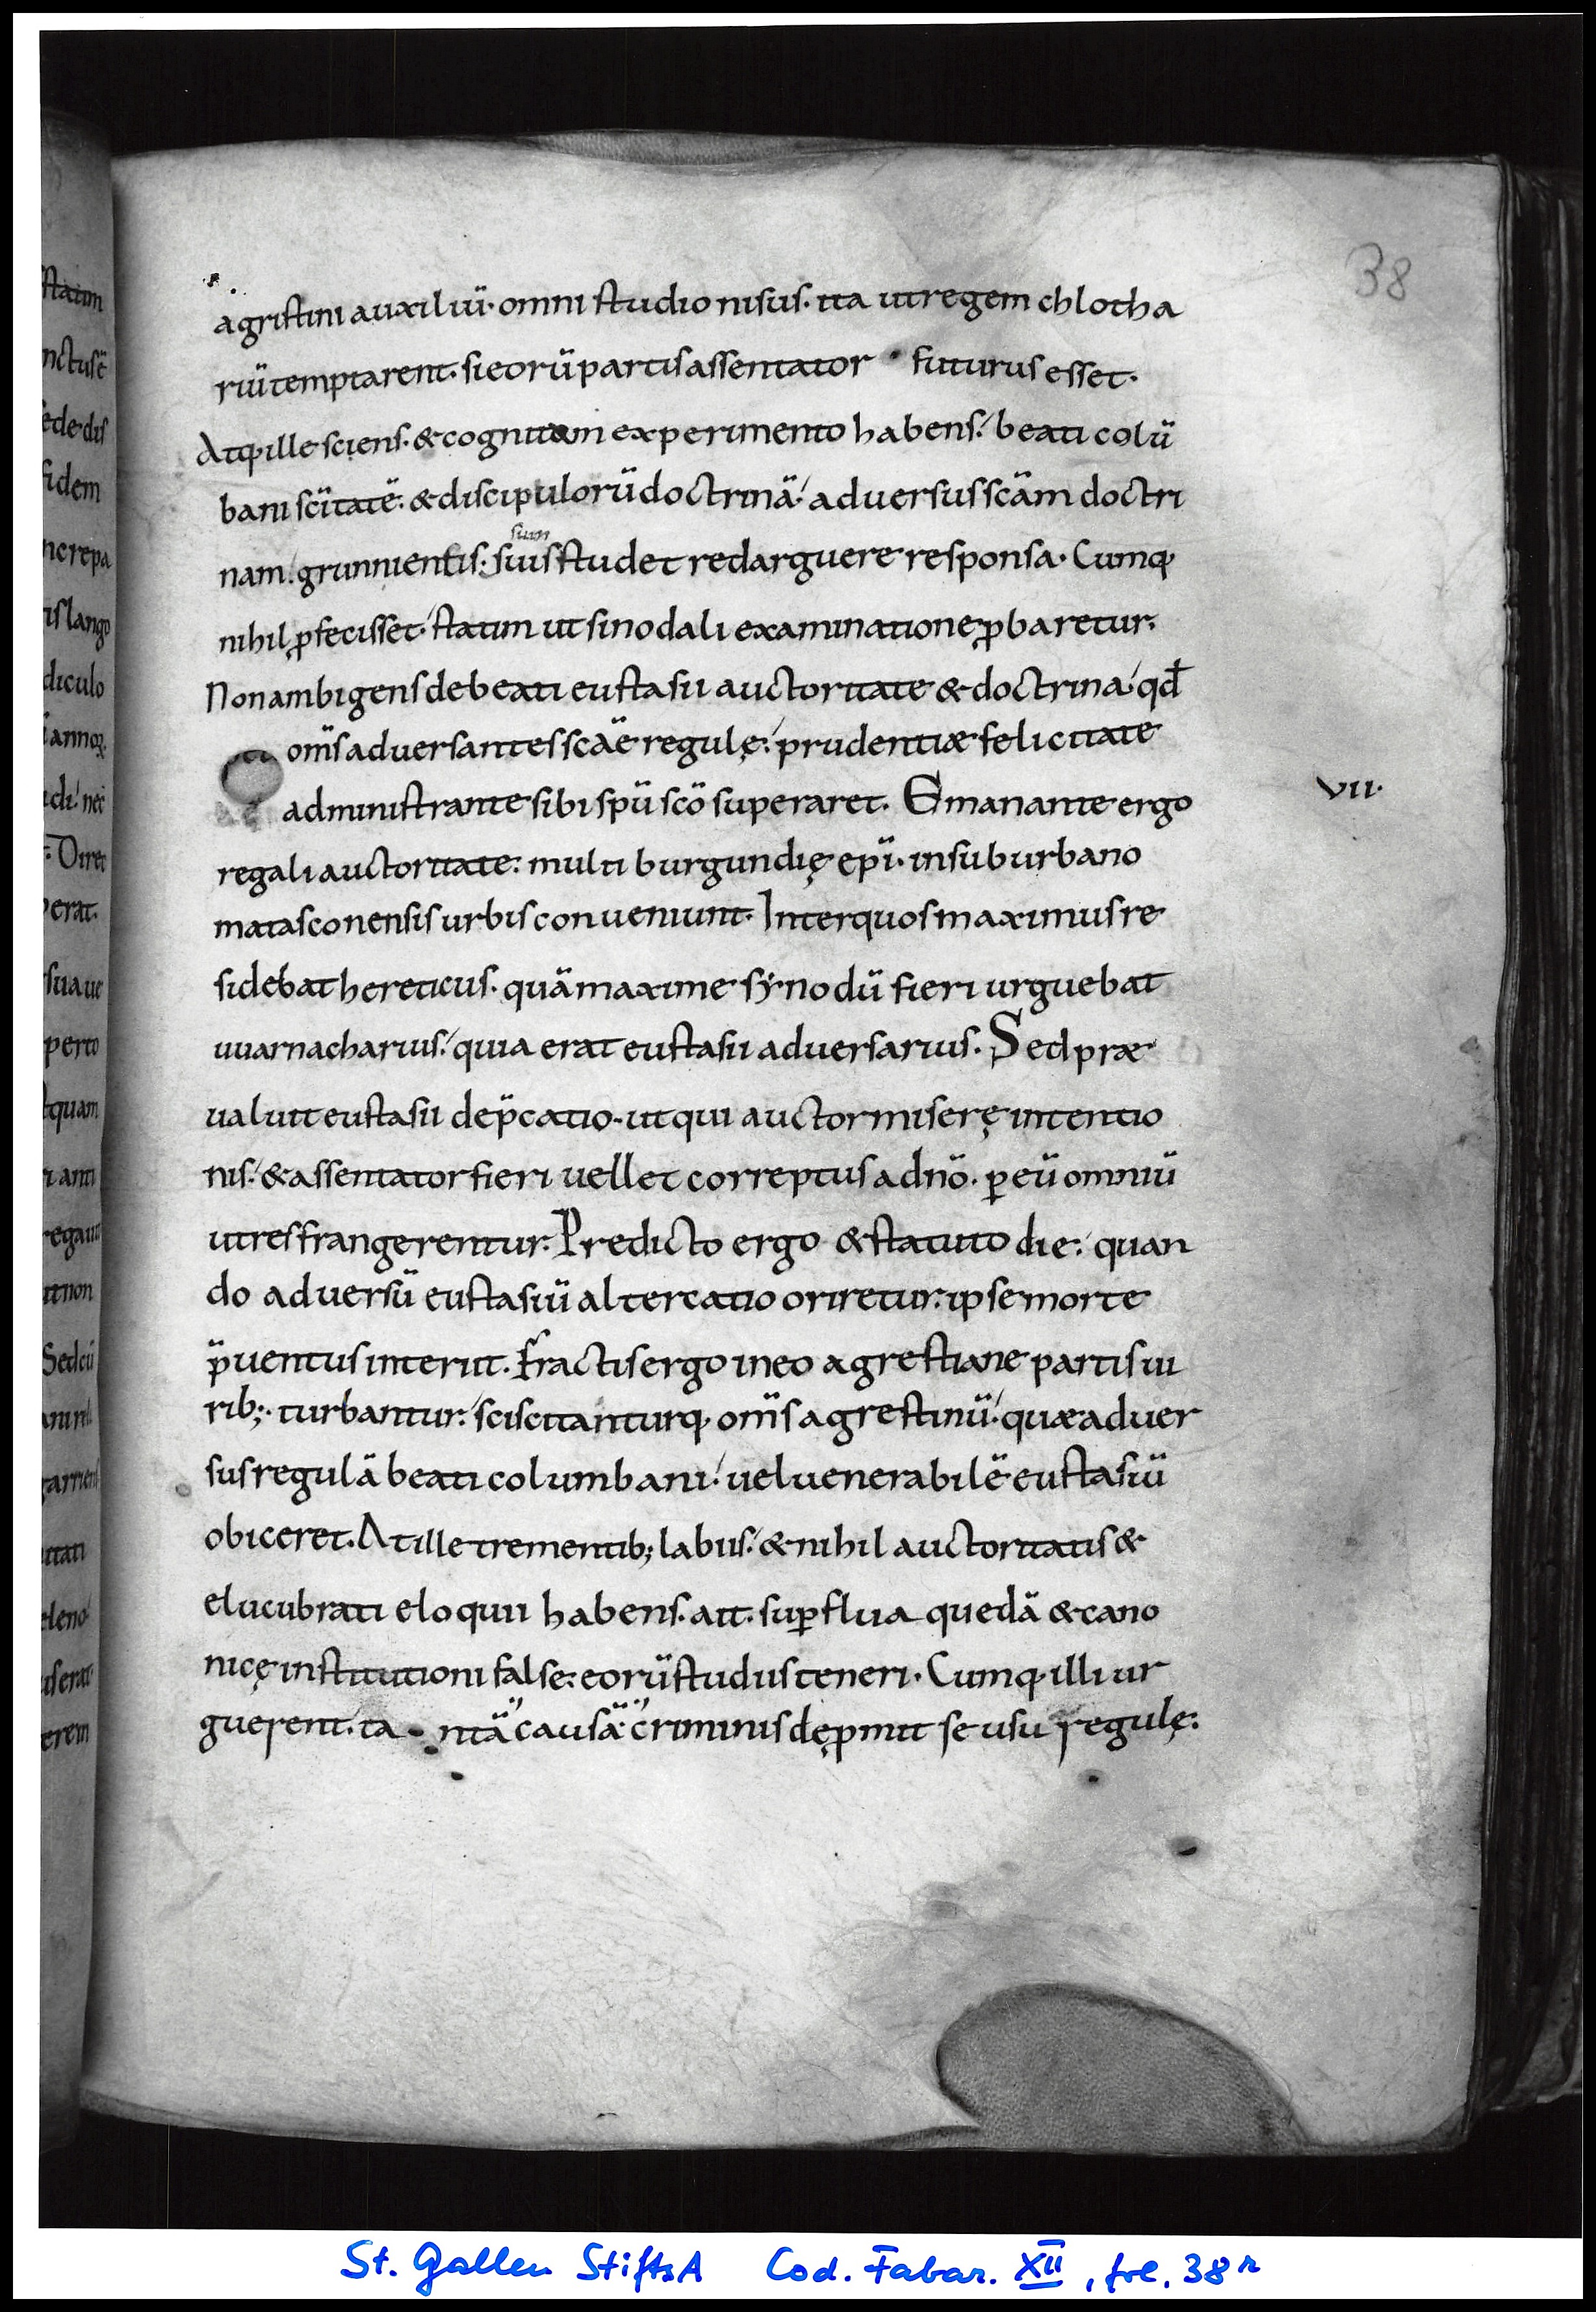 38
agrestini auxiliū· omni studio nisus· ita ut regem chlotha
riū temptarent· si eorū partis assentator futurus esset·
Atq· ille sciens· & cognitam experimento habens· beati colū
bani scītatē· & discipulorū doctrinā· adversus scām doctri
sum
nam· grunnientis· suis studet redarguere responsa· Cumq·
nihil ꝓfecisset· statim ut sinodali examinatione ꝓbaretur·
Non ambigens de beati eustasii auctoritate & doctrina· qđ
om̄s adversantes scāe regulę· prudentiæ felicitate
administrante sibi spū scō superaret· Emanante ergo
VII·
regali auctoritate· multi burgundię epī· in suburbano
matasconensis urbis conveniunt· Inter quos maximus re
sidebat hereticus· quā maxime synodū fieri urguebat
uuarnacharius· quia erat eustasii adversarius· Sed præ
valuit eustasii dep̄catio· ut qui auctor miserę intentio
nis· & assentator fieri vellet correptus a dnō· ꝑ eū omniū
vires frangerentur· Predicto ergo & statuto die· quan
do adversū eustasiū altercatio oriretur· ipse morte
p̄ventus interiit· Fractis ergo in eo agrestiane partis vi
rib;· turbantur· sciscitanturq· om̄s agrestinū· quæ adver
sus regulā beati columbani· vel venerabilē eustasiū
obiceret· At ille trementib; labiis· & nihil auctoritatis &
elucubrati eloquii habens· ait· suꝑflua quedā & cano
nicę institutioni false· eorū studiis teneri· Cumq· illi ur
guerent· ta ntā causā criminis deꝓmit se usu regulę·
St. Gallen StiftsA Cod. Fabar. XII, fol. 38r